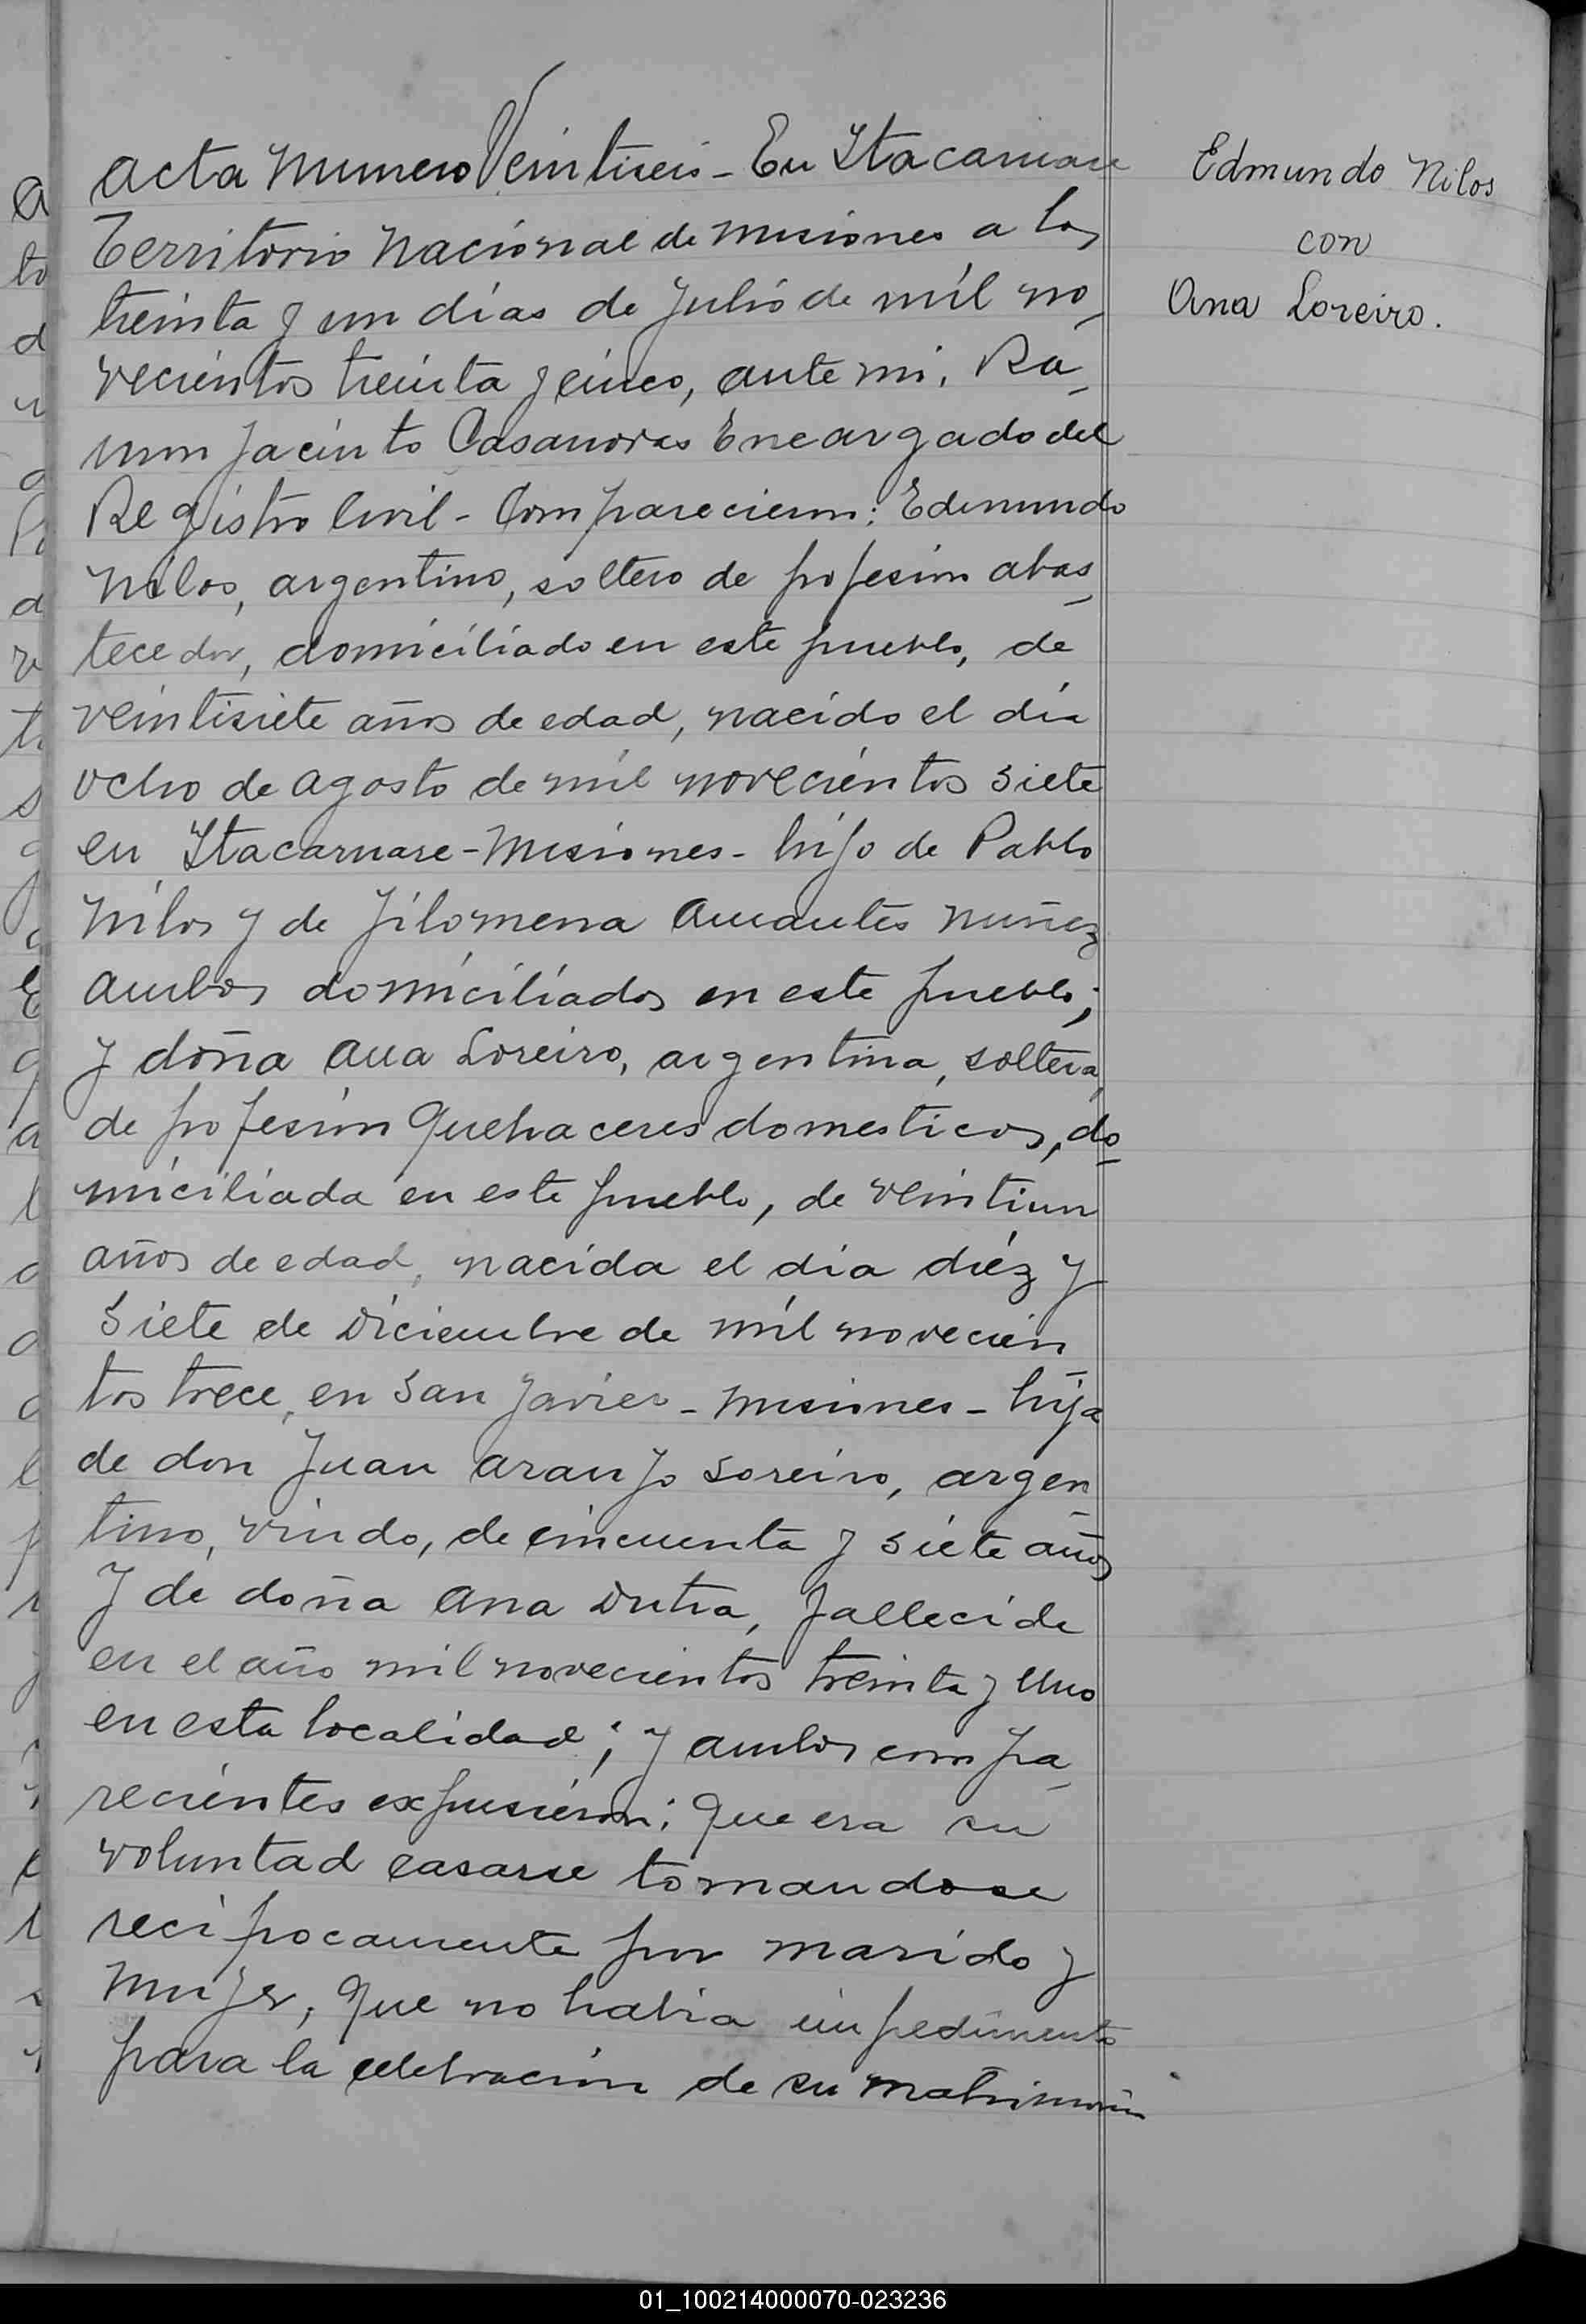 acta Numero Veintiseis - En Itacaruare
Territorio Nacional de misiones a los
treinta y un días de Julio de mil no-
vecientos treinta y cinco, ante mi, Ra-
mon Jacinto Casanovas Encargado del
Registro Civil - Comparecieron: Edmundo
Nilos, argentino, soltero de profesion abas-
tecedor, domiciliado en este pueblo, de
veintisiete años de edad, nacido el día
ocho de agosto de mil novecientos siete
en Itacaruare - Misiones - hijo de Pablo
Nilos y de Filomena Amantes Nuñez
ambos domiciliados en este pueblo;
y doña Ana Loreiro, argentina, soltera,
de profesion Quehaceres domesticos, do-
miciliada en este pueblo, de veintiun
años de edad, nacida el dia diéz y
siete de Diciembre de mil novecien-
tos trece, en San Javier - misiones - hija
de don Juan Araujo Loreiro, argen-
tino, viudo, de cincuenta y siete años
y de doña Ana Dutra, fallecida
en el año mil novecientos treinta y uno
en esta localidad; y ambos compa-
recientes expusieron: Que era su
voluntad casarse tomandose
recipocamente por marido y
mujer, que no habia impedimento
para la celebración de su matrimonio
Edmundo Nilos
con
Ana Loreiro.
01_100214000070-023236